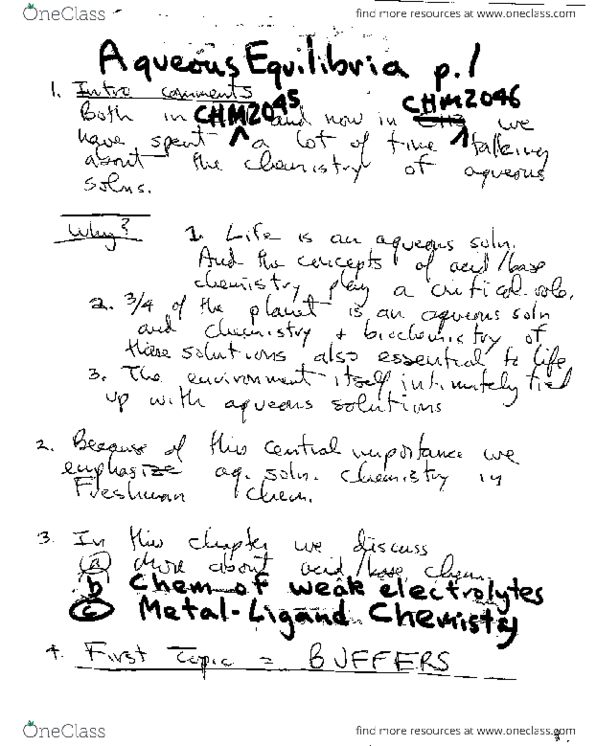 OneClass
find more resources at www.oneclass.com
Aqueous Equilibria p.1
1. Intro comments
CHM2046
Both in CHM2045 and now in we
have spent ^ a lot of time ^ talking
about the chemistry of aqueous
solns.
Why? 1. Life is an aqueous soln.
And the concepts of acid/base
chemistry play a critical role.
2. 3/4 of the planet is an aqueous soln
and chemistry + biochemistry of
these solutions also essential to life
3. The environment itself intimately tied
up with aqueous solutions
2. Because of this central importance we
emphasize aq. soln. chemistry in
Freshman Chem.
3. In this chapter we discuss
(a) more about acid/base chem.
b Chem of weak electrolytes
(c) Metal-Ligand Chemistry
4. First Topic = BUFFERS
OneClass
find more resources at www.oneclass.com